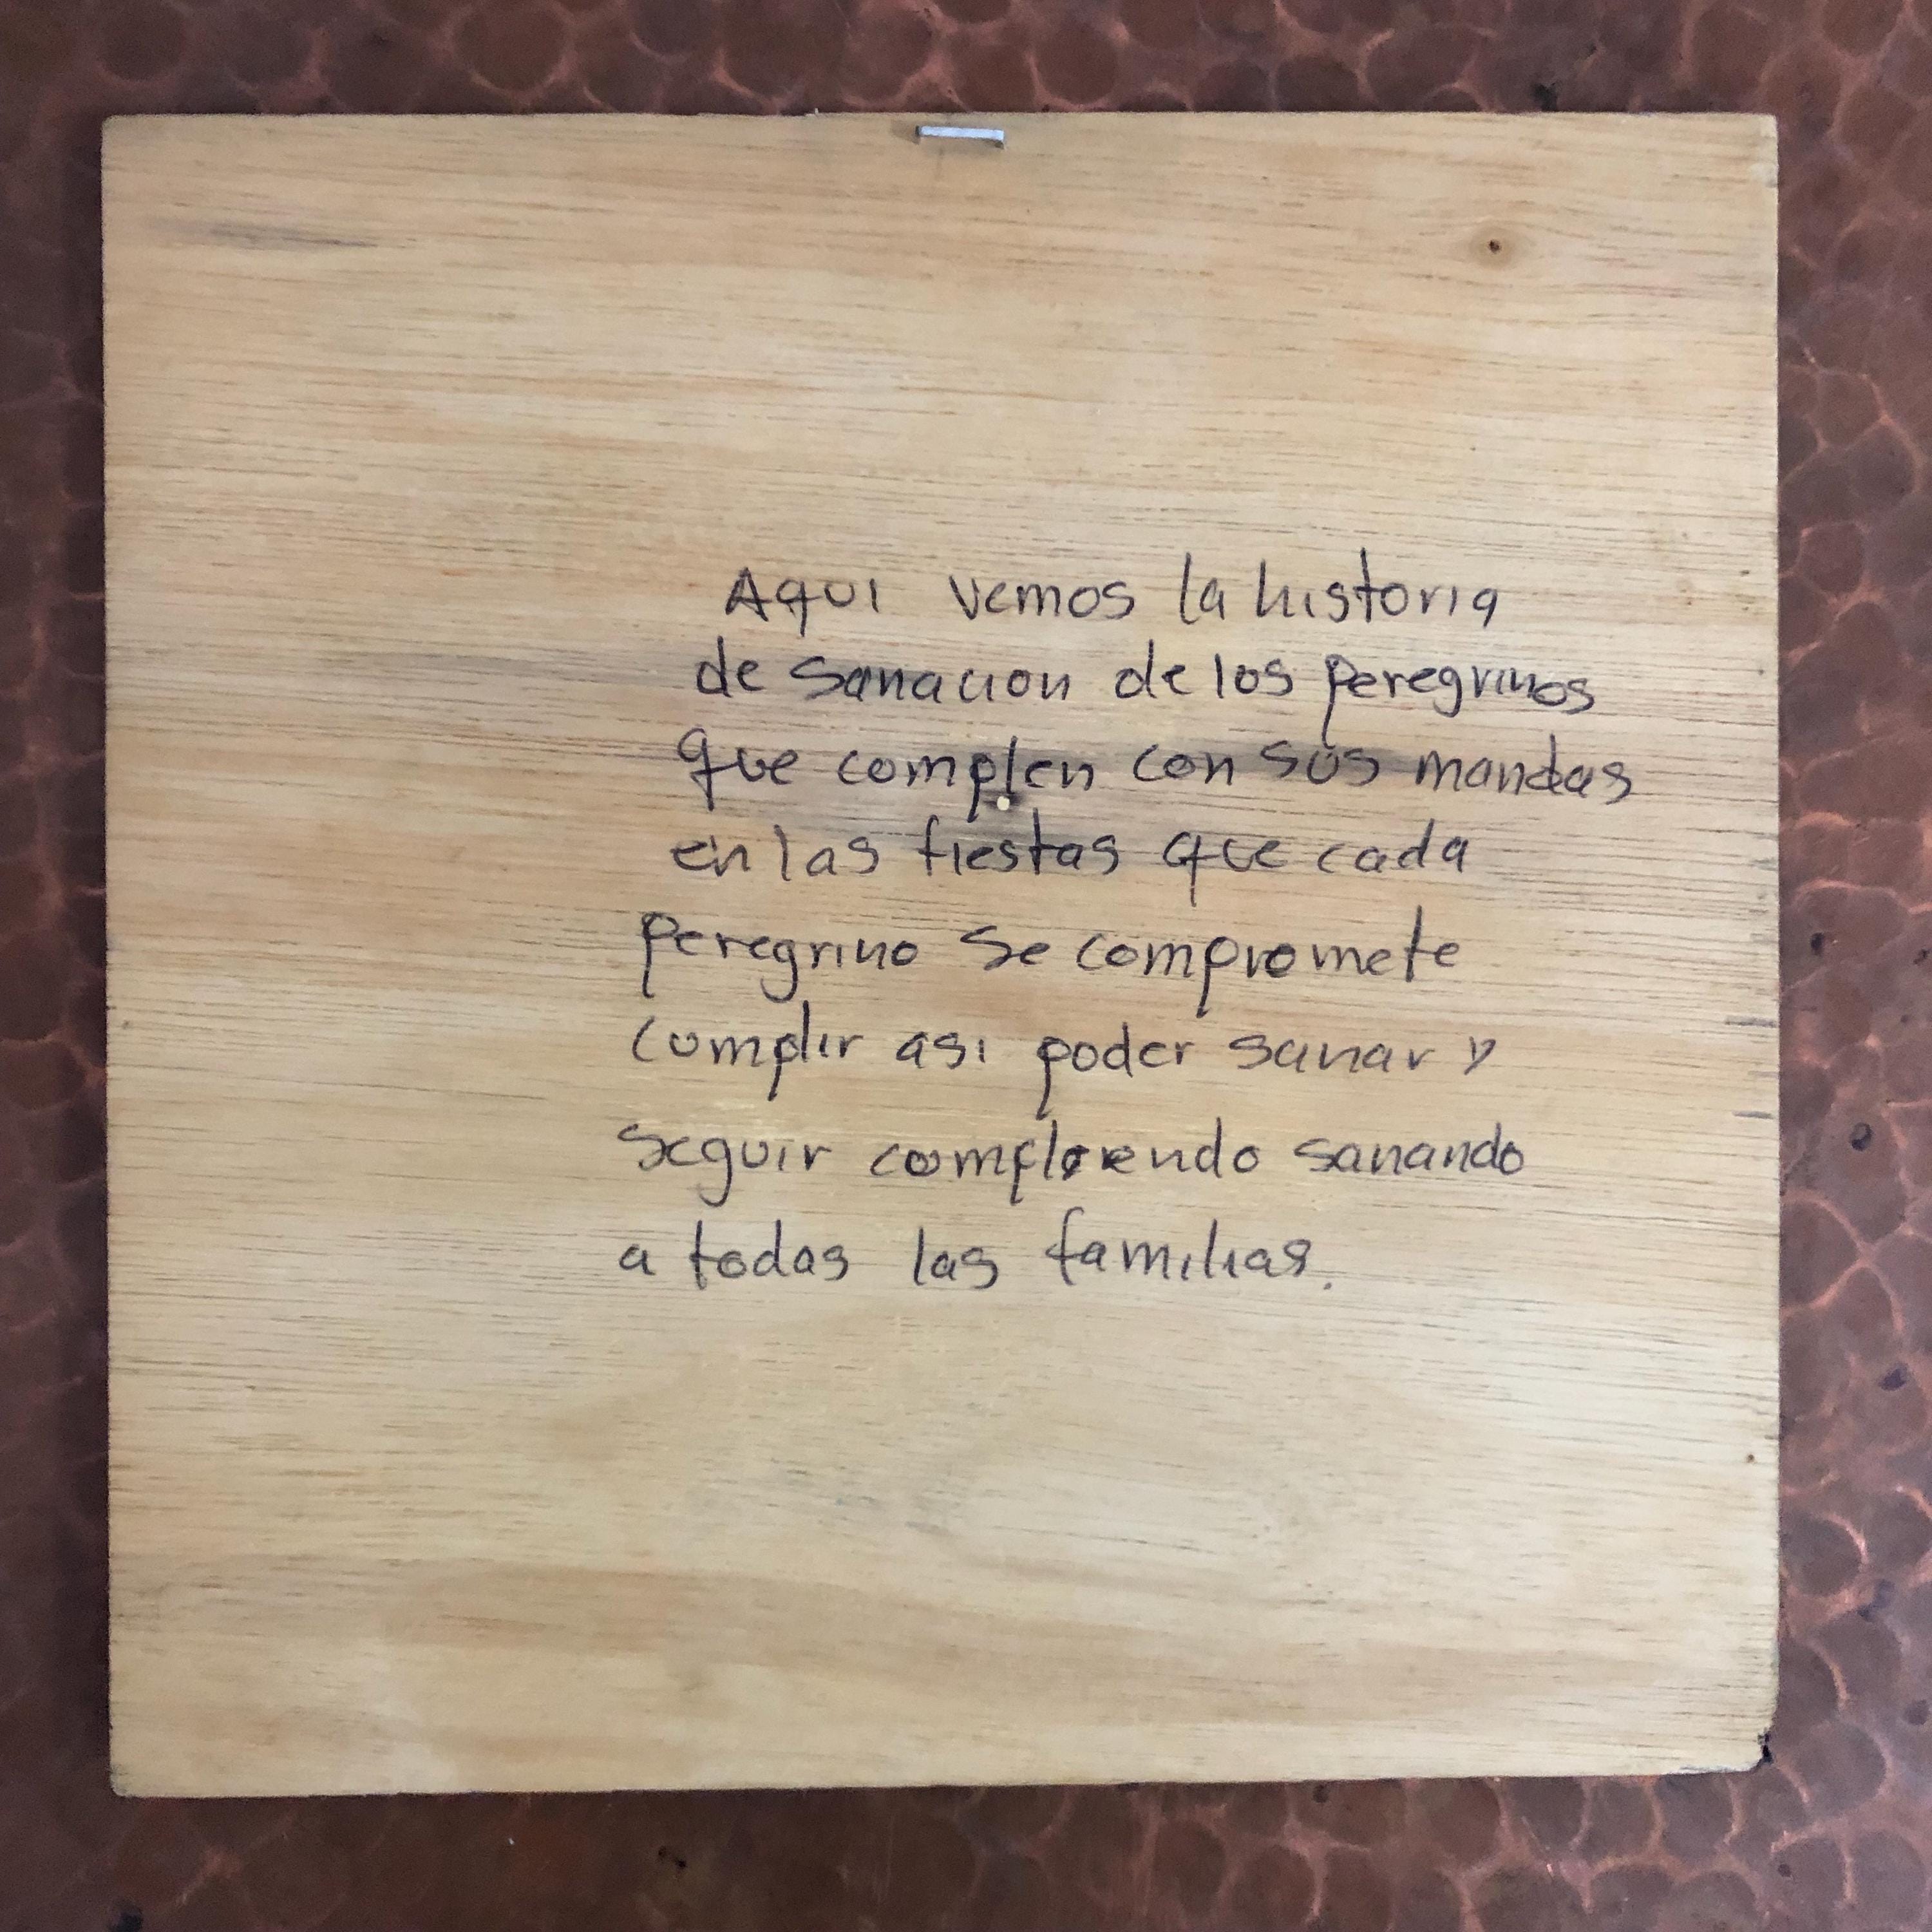 Aqui vemos la historia
de sanacion de los peregrinos
que complen con sus mandas
en las fiestas que cada
peregrino se compromete
cumplir asi poder sanar y
seguir compliendo sanando
a todas las familias.